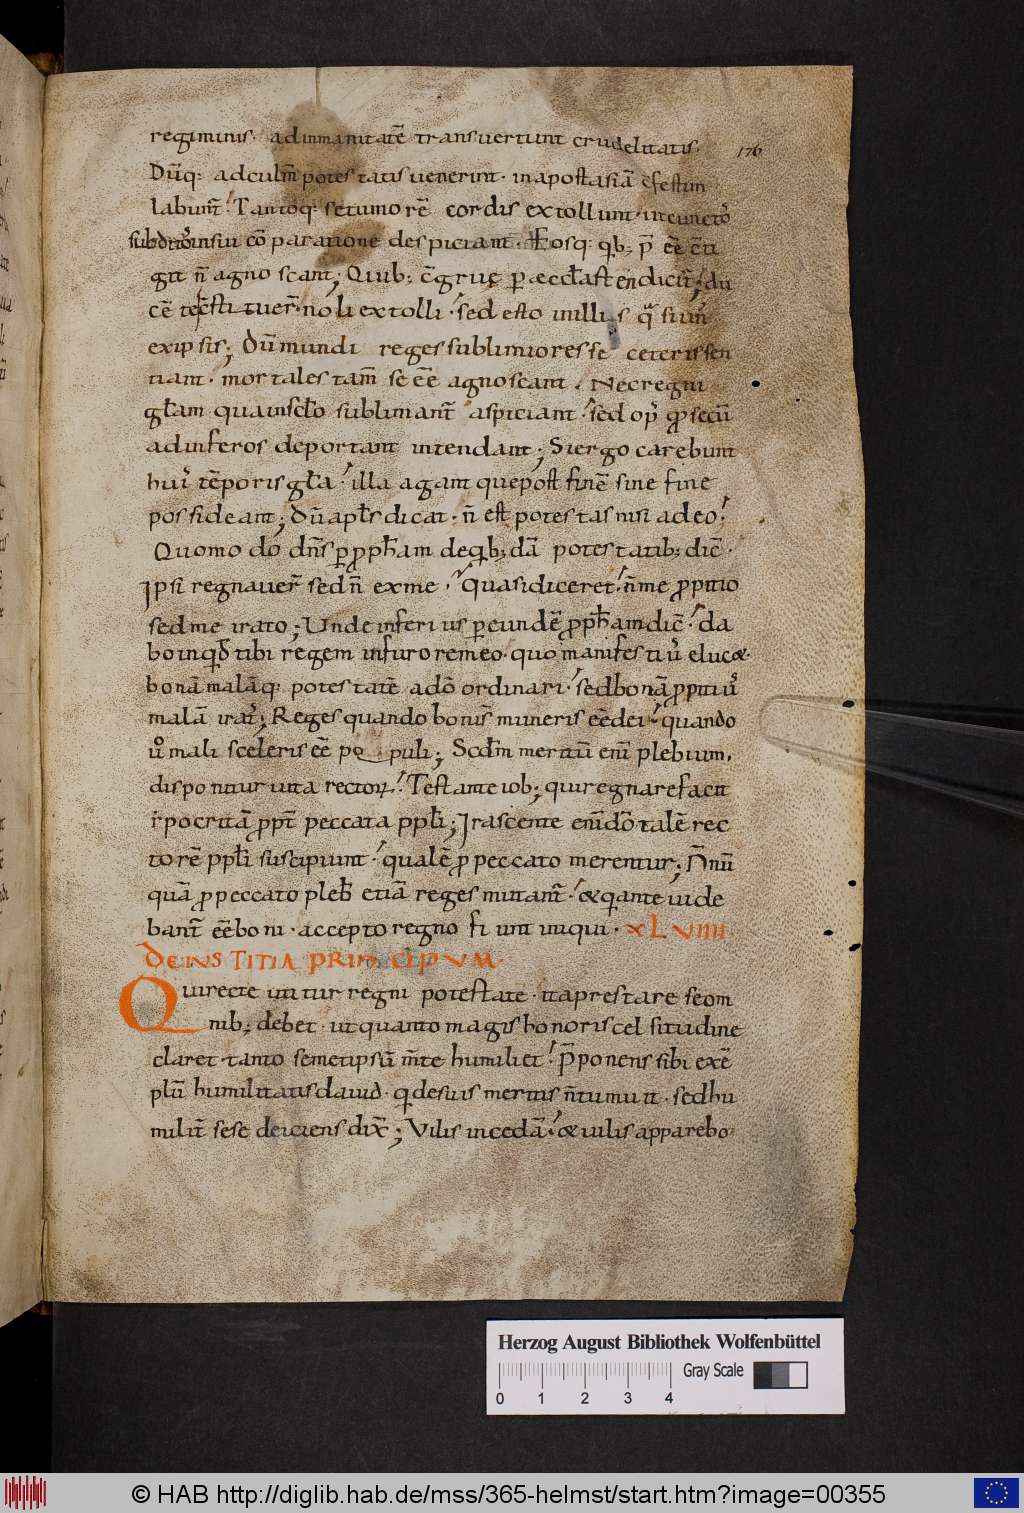 regiminis. ad inmanitatē transvertunt crudelitatis.
176
Dūq: ad culm̄ potestatis venerint. in apostasiā c̄festim
labunt̄. Tantoq: se tumorē cordis extollunt. ut cunctos
subditos in sui cōparatione despiciant. Eosq: qb; p̄ēē c̄ti
git n̄ agnoscant; Quib; c̄grue p æccl̄astēn dicit̄; du
cē te c̄stituer̄. noli extolli. sed esto in illis q̄si un'
ex ipsis; Dū mundi reges sublimiores se ceteris sen
tiant. mortales tam̄ se ēē agnoscant. Nec regni
gl̄am qua in scl̄o sublimant̄ aspiciant. sed op' q̄ secū
ad inferos deportant intendant; Si ergo carebunt
hui' tēporis gl̄a. illa agant que post finē sine fine
possideant; Dū apl̄s dicat. n̄ est potestas nisi a deo.
Quomodo dn̄s p pph̄am de qb;dā potestatib; dic̄.
Ipsi regnaver̄ sed n̄ ex me. Quasi diceret. n̄ me ppitio
sed me irato; Unde inferius p eundē pph̄am dic̄. da
bo inqd̄ tibi regem in furore meo. quo manifesti' elucet.
bonā malāq: potestatē a dō ordinari. sed bonā ppitiū
malā irat'; Reges quando boni sт muneris ēē dei. quando
vo mali sceleris ēē populi; Scd̄m meritū enī plebium.
disponitur vita rector. Testante iob; qui regnare facit
ipocritā ppt̄ peccata ppl̄i; Irascente enī dō talē rec
torē ppl̄i suscipiunt. qualē p peccato merentur; Nōnū
quā p peccato pleb̄ etiā reges mutant̄. & q ante vide
bant̄ ēē boni. accepto regno fiunt iniqui. XLVIIII.
DE IUSTITIA PRINCIPUM
Qui recte utitur regni potestate. ita prestare se om
nib; debet. ut quanto magis honoris celsitudine
claret. tanto semetipsū m̄te humiliet. p̄ponens sibi exē
plū humilitatis david. q de suis meritis n̄ tumuit. sed hu
milit̄ sese deiciens dix̄; Vilis incedā. & vilis apparebo
Herzog August Bibliothek Wolfenbüttel
Gray Scale
0 1 2 3 4
© HAB http://diglib.hab.de/mss/365-helmst/start.htm?image=00355